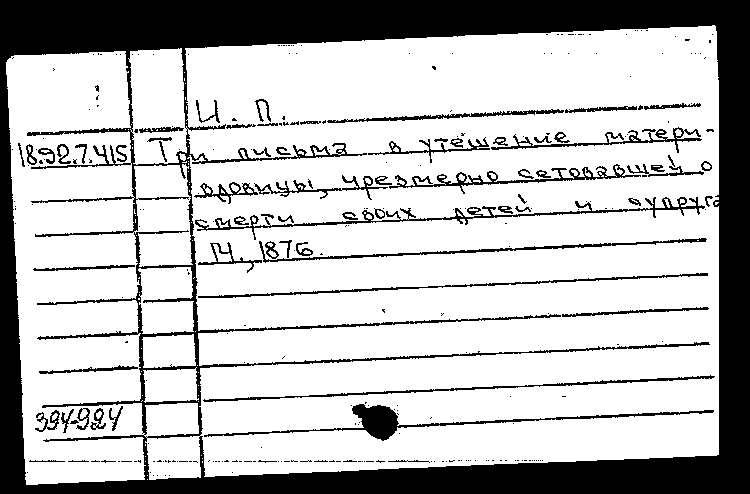 И. П.
18.92.7.415 Три письма в утешение матери-
вдовицы, чрезмерно сетовавшей о
смерти своих детей и супруга
М., 1876.
394-924